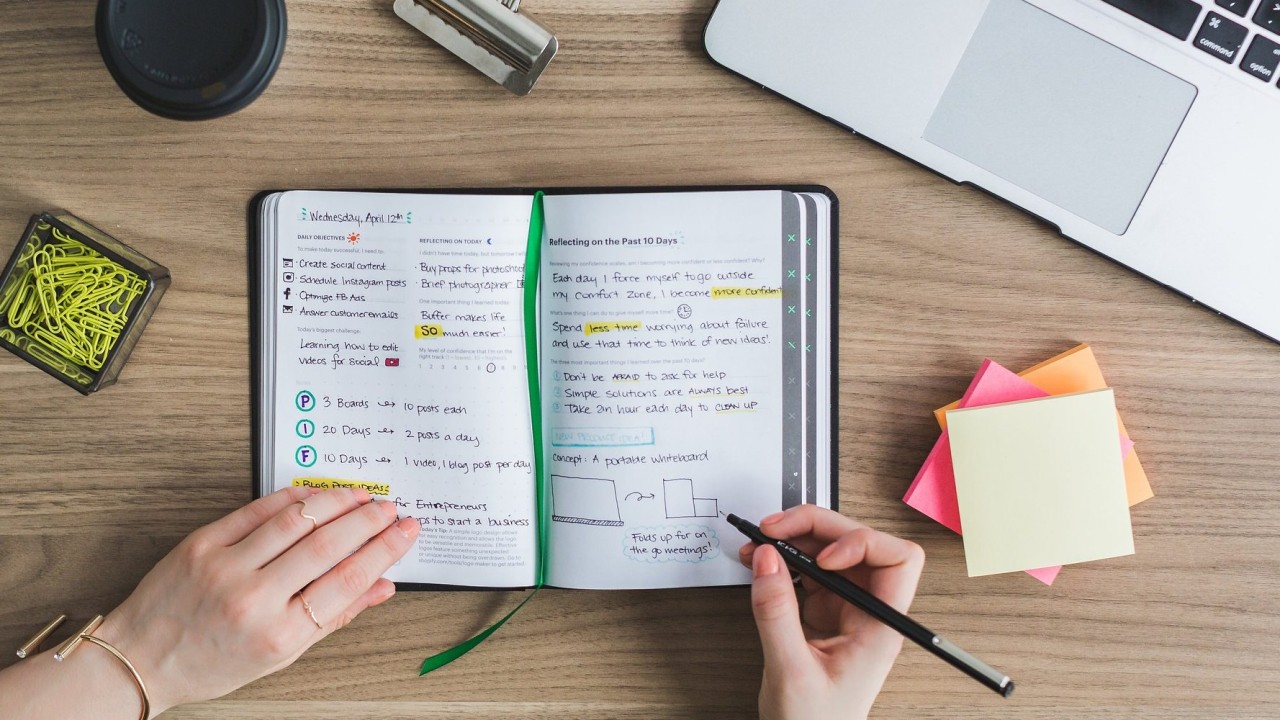 Wednesday, April 12th
DAILY OBJECTIVES
To make today successful, I need to:
· Create social content
· Schedule Instagram posts
· Optimize FB Ads
· Answer customer emails
Today's biggest challenge:
Learning how to edit
videos for Social
P 3 Boards → 10 posts each
I 20 Days → 2 posts a day
F 10 Days → 1 video, 1 blog post per day
BLOG POST IDEAS
for Entrepreneurs
to start a business
REFLECTING ON TODAY
I didn't have time today, but tomorrow I will
· Buy props for photoshoot
· Brief photographer
One important thing I learned today:
Buffer makes life
SO much easier!
My level of confidence that I'm on the
right track (1 = lowest, 10 = highest):
1 2 3 4 5 6 7 8 9
Today's Tip: A simple logo design allows
for easy recognition and allows the logo
to be versatile and memorable. Effective
logos feature something unexpected
or unique without being overdrawn. Go to
shopify.com/tools/logo-maker to get started
Reflecting on the Past 10 Days
Reviewing my confidence scales, am I becoming more confident or less confident? Why?
Each day I force myself to go outside
my comfort zone, I become more confident
What's one thing I can do to give myself more time?
Spend less time worrying about failure
and use that time to think of new ideas!
The three most important things I learned over the past 10 days?
1 Don't be AFRAID to ask for help
2 Simple solutions are ALWAYS best
3 Take an hour each day to CLEAN UP
NEW PRODUCT IDEA!
Concept: A portable whiteboard
Folds up for on
the go meetings!
⌘
command
option